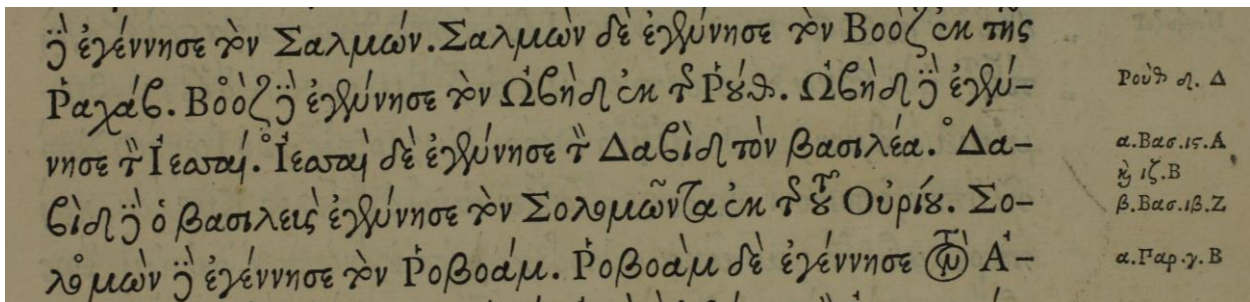 δὲ ἐγέννησε τὸν Σαλμών. Σαλμὼν δὲ ἐγέννησε τὸν Βοὸζ ἐκ τῆς
Ῥαχάβ. Βοὸζ δὲ ἐγέννησε τὸν Ὠβὴδ ἐκ τῆς Ῥούθ. Ὠβὴδ δὲ ἐγέν-
Ρούθ δ. Δ
νησε τὸν Ἰεσσαί. Ἰεσσαὶ δὲ ἐγέννησε τὸν Δαβὶδ τὸν βασιλέα. Δα-
α.Βασ.ις.Α
καὶ ιζ.Β
βὶδ δὲ ὁ βασιλεὺς ἐγέννησε τὸν Σολομῶντα ἐκ τῆς τοῦ Οὐρίου. Σο-
β.Βασ.ιβ.Ζ
λομὼν δὲ ἐγέννησε τὸν Ῥοβοάμ. Ῥοβοὰμ δὲ ἐγέννησε τὸν Ἀ-
α.Παρ.γ.Β